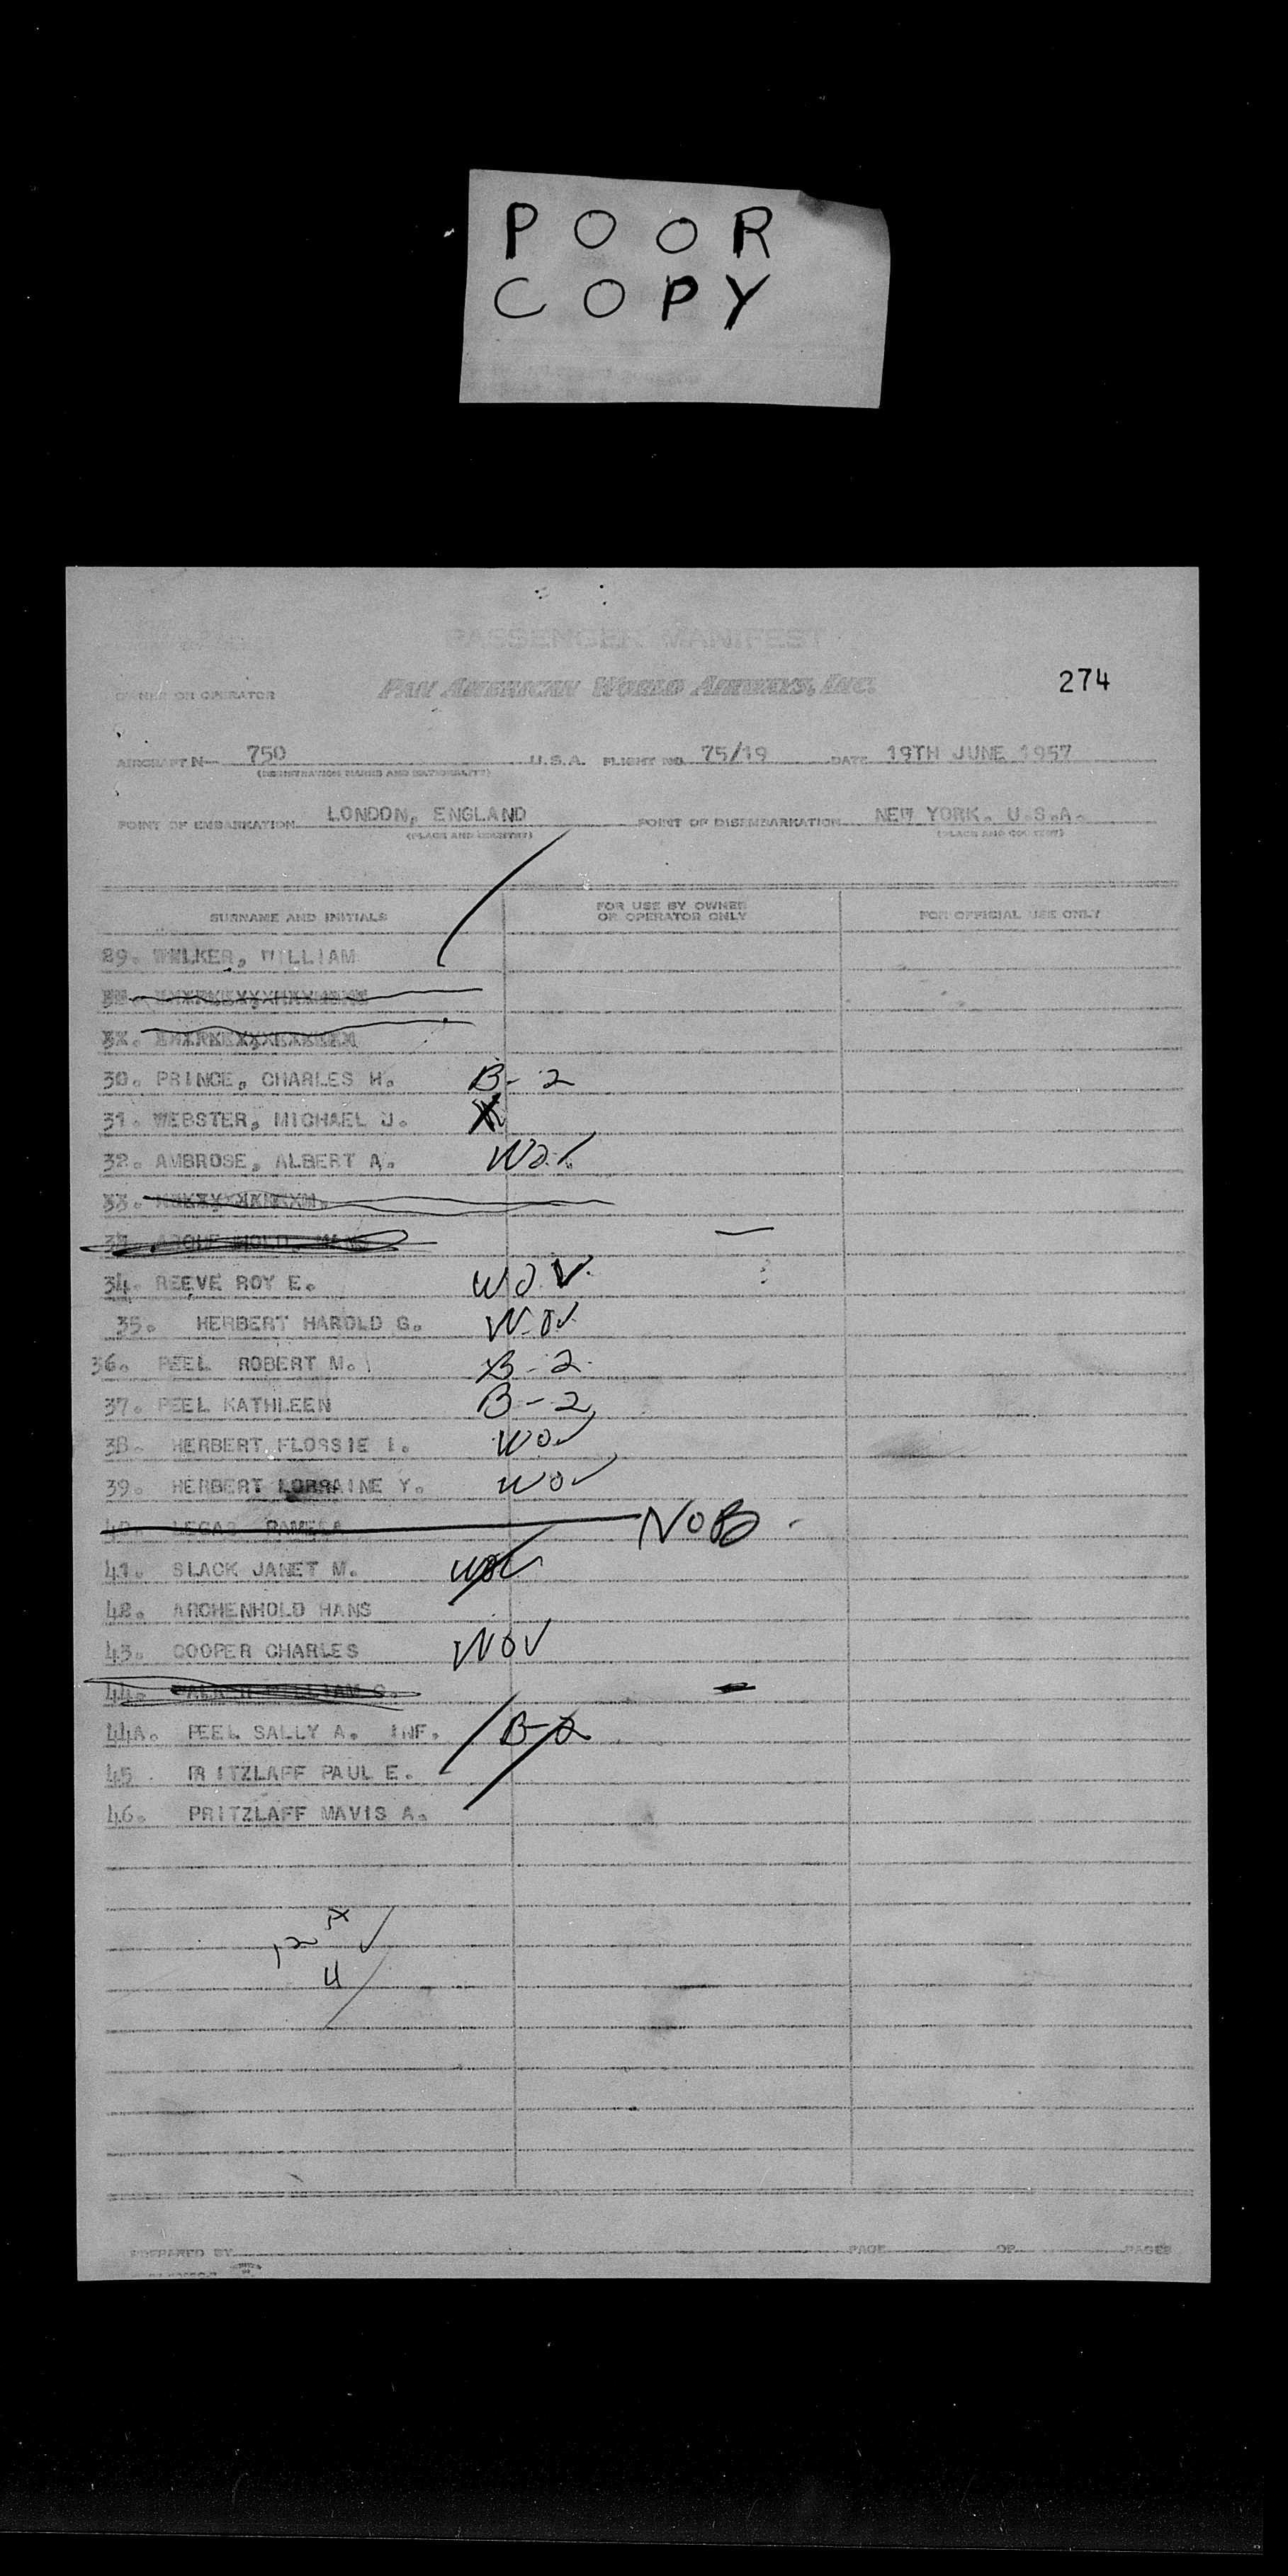 POOR
COPY
PASSENGER MANIFEST
OWNER OR OPERATOR PAN AMERICAN WORLD AIRWAYS, INC. 274
AIRCRAFT N- 750 U.S.A. FLIGHT NO. 75/19 DATE 19TH JUNE 1957
(REGISTRATION MARKS AND NATIONALITY)
POINT OF EMBARKATION LONDON, ENGLAND POINT OF DISEMBARKATION NEW YORK. U.S.A.
(PLACE AND COUNTRY) (PLACE AND COUNTRY)
SURNAME AND INITIALS FOR USE BY OWNER OR OPERATOR ONLY FOR OFFICIAL USE ONLY
29. WALKER, WILLIAM
30. PRINCE, CHARLES H. B-2
31. WEBSTER, MICHAEL J.
32. AMBROSE, ALBERT A.
33.
34. REEVE ROY E. WOV
35. HERBERT HAROLD G. WOV
36. PEEL ROBERT M. B-2
37. PEEL KATHLEEN B-2
38. HERBERT FLOSSIE I. WOV
39. HERBERT LORRAINE Y. WOV
40. LEGAS PAMELA NOB
41. SLACK JANET M. WOV
42. ARCHENHOLD HANS
43. COOPER CHARLES WOV
44. WILLIAM
44A. PEEL SALLY A. INF. B-2
45 PRITZLAFF PAUL E.
46. PRITZLAFF MAVIS A.
PREPARED BY PAGE OF PAGES